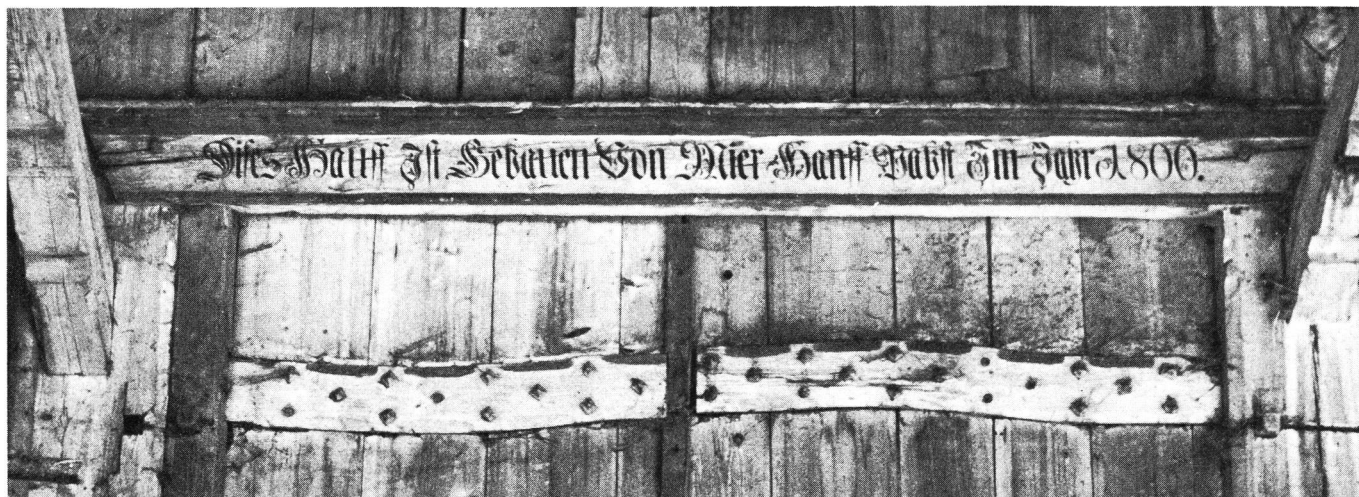 Dises Hauss Ist Gebauen Von Mier Hanss Pabst Im Jahr 1800.